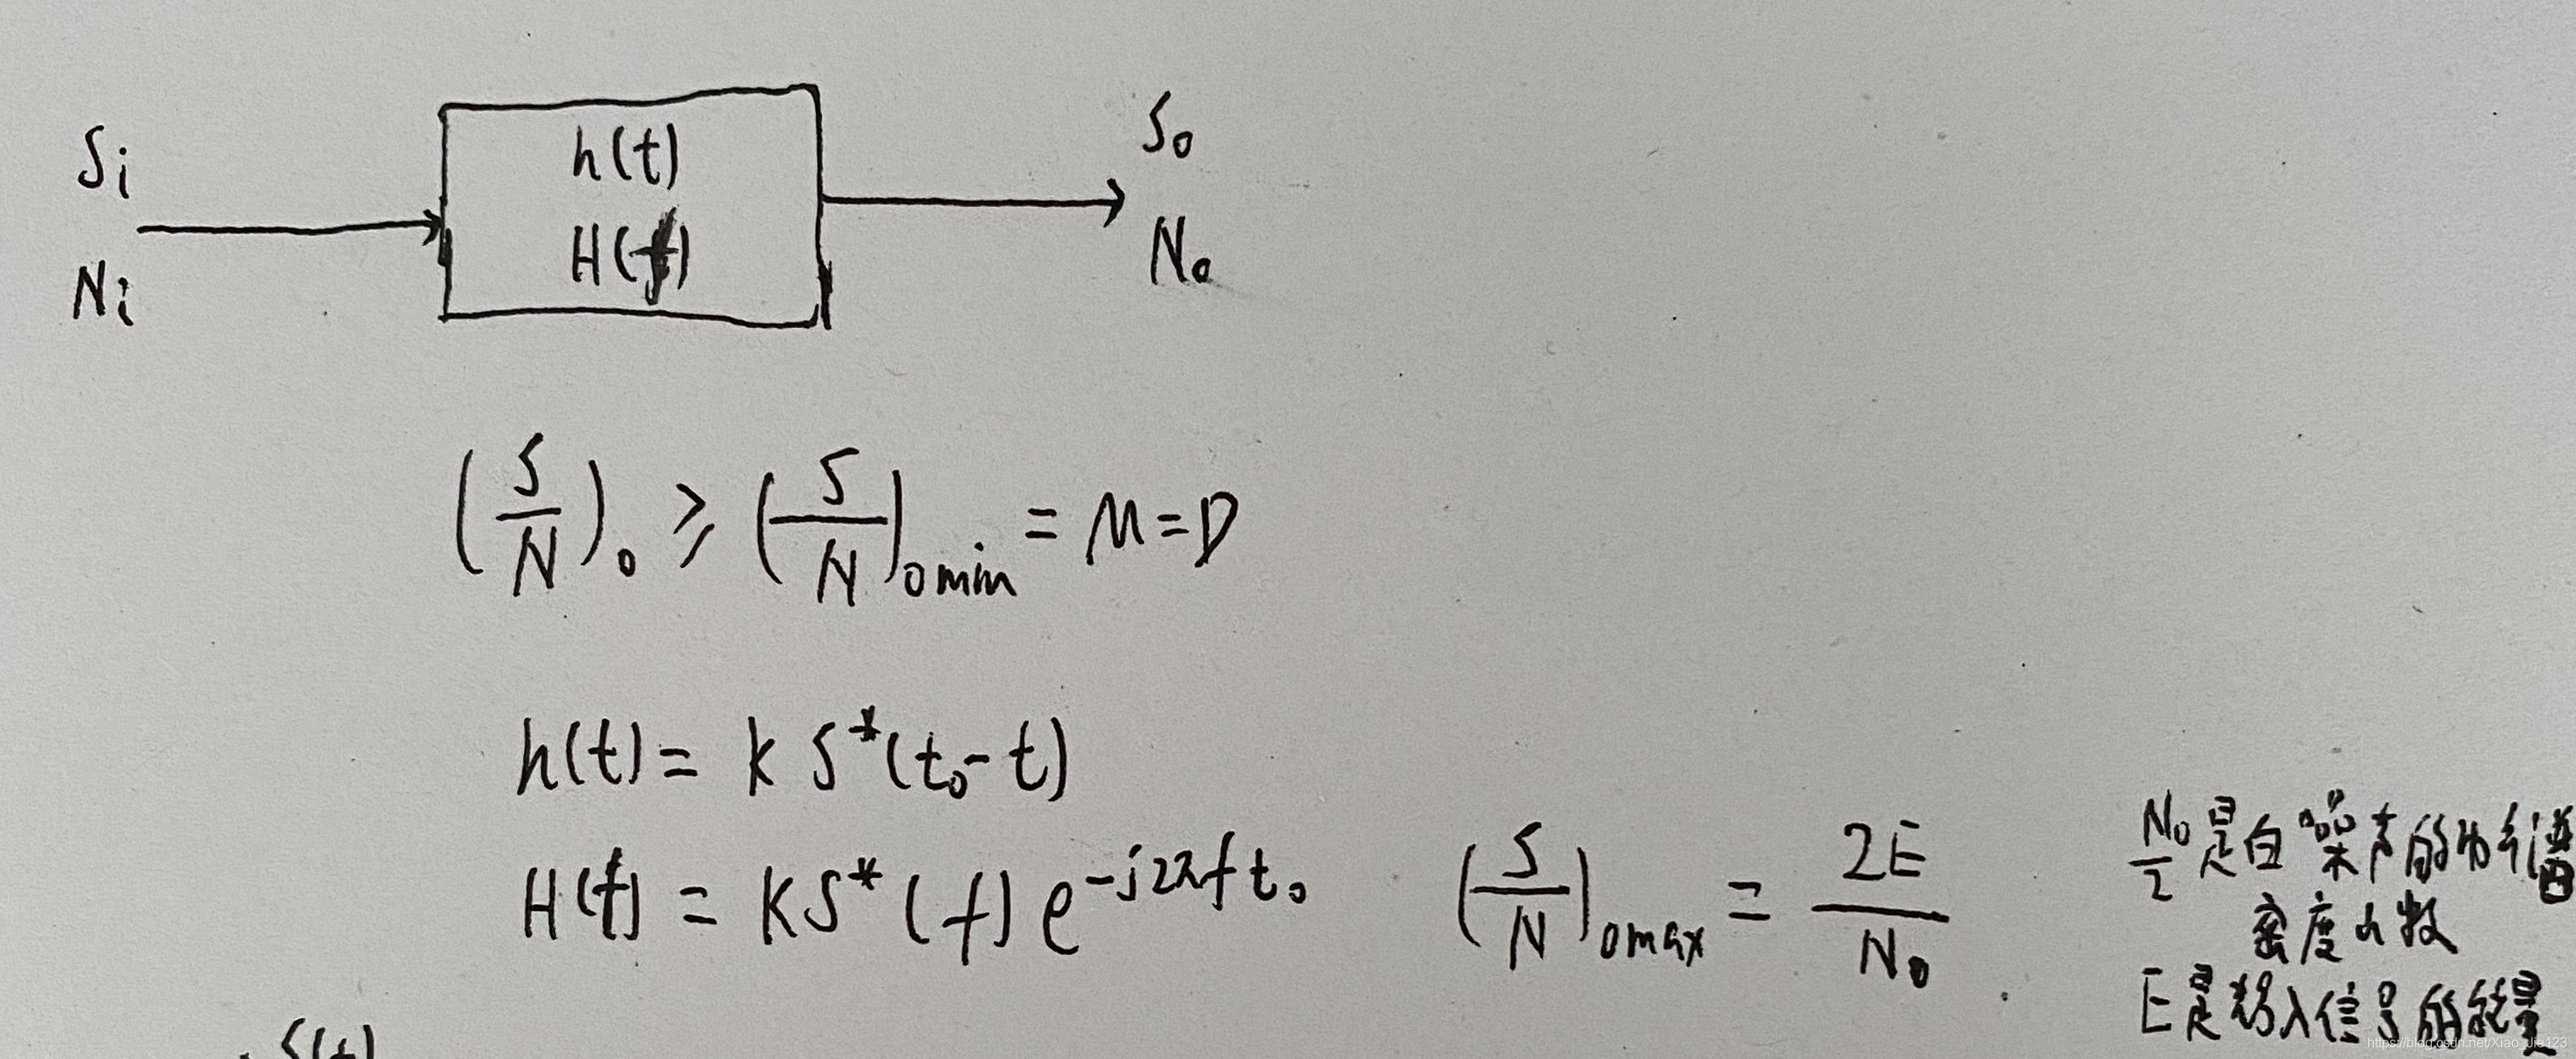 Si
Ni
h(t)
H(f)
So
No
(S/N)o ≥ (S/N)o min = M = D
h(t) = k S*(t₀ - t)
H(f) = K S*(f) e^{-j2πft₀}
(S/N)o max = 2E/N₀
N₀/2 是白噪声的功率谱
密度函数
E是输入信号的能量
S(t)
https://blog.csdn.net/Xiao_Jie123